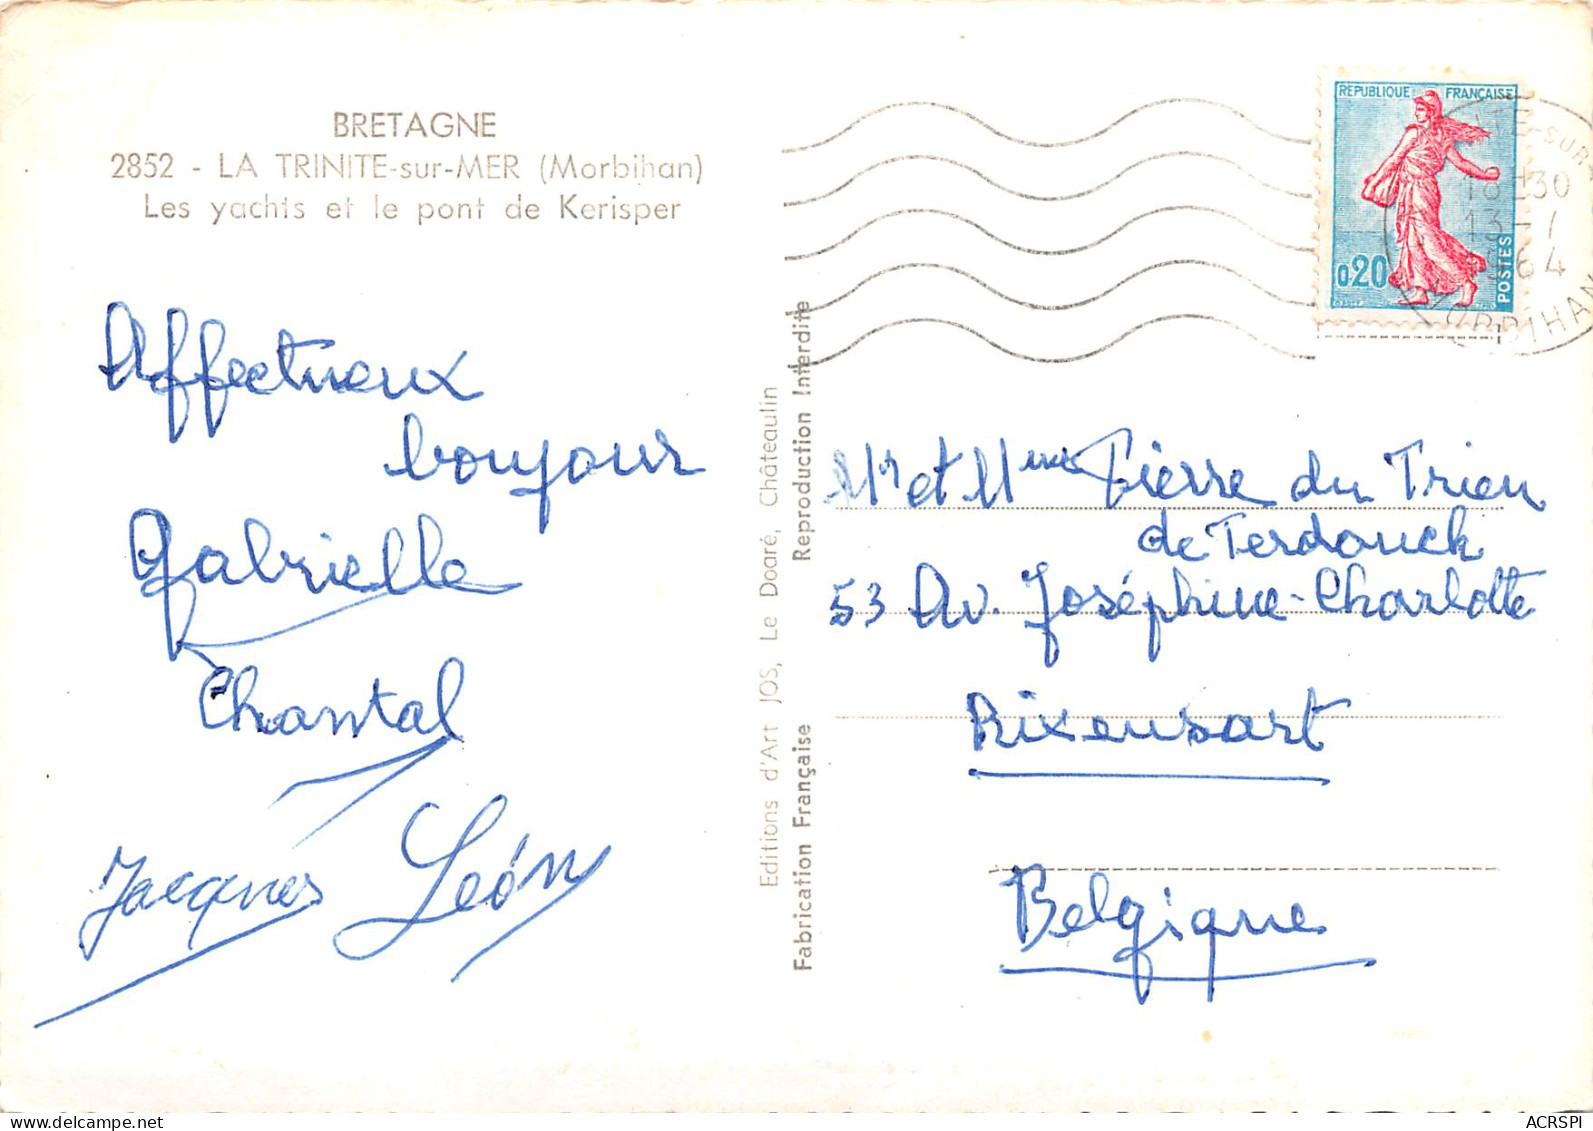 BRETAGNE
2852 - LA TRINITE-sur-MER (Morbihan)
Les yachts et le pont de Kerisper
Affectueux
bonjour
Gabrielle
Chantal
Jacques León
Editions d'Art JOS, Le Doaré, Châteaulin
Fabrication Française Reproduction Interdite
REPUBLIQUE FRANÇAISE
0,20
POSTES
18 30
13 - 1
1964
MORBIHAN
Mr et Mme Pierre du Trieu
de Terdonck
53 Av. Joséphine-Charlotte
Rixensart
Belgique
ACRSPI